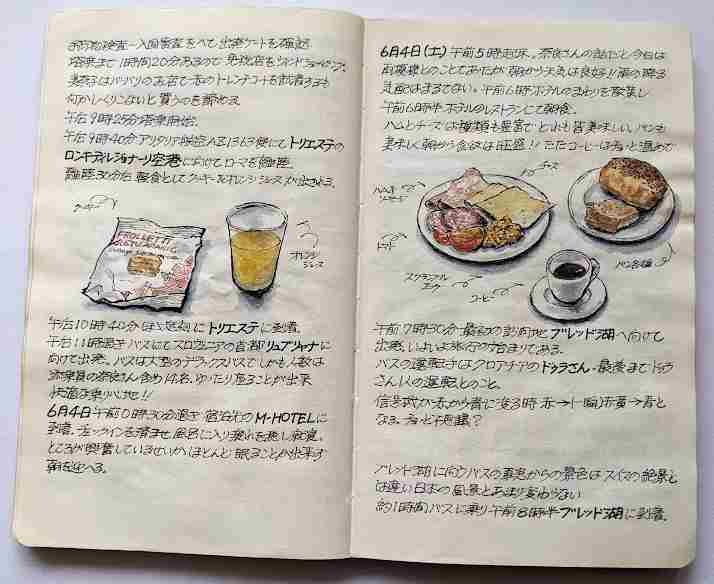 手荷物検査→入国審査をへて出発ゲートを確認
搭乗まで1時間20分あるので免税店をウィンドショッピング
バーバリのお店で赤のトレンチコートを試着するも
何かしっくりこないと買うのを諦める
午后9時25分搭乗開始
午后9時40分アリタリア航空AZ1363便にてトリエステの
ロンキ・ディ・レジョナーリ空港に向けてローマを離陸
離陸30分后軽食としてクッキーとオレンジジュースが出される
クッキー
FROLLETTI
オレンジ
ジュース
午后10時40分ほぼ定刻にトリエステに到着
午后11時過ぎバスにてスロヴェニアの首都リュブリャナに
向けて出発。バスは大型のデラックスバスでしかも人数は
添乗員の奈良さん含め14名。ゆったり座ることが出来
快適な乗り心地!!
6月4日午前0時30分過ぎ宿泊先のM-HOTELに
到着。チェックインを済ませ風呂に入り疲れを癒し就寝。
ところが興奮しているせいかほとんど眠ることが出来ず
朝を迎える。
6月4日(土)午前5時起床。奈良さんの話だと今日は
雨模様とのことであったが朝から天気は良好!!雨の降る
気配はまるでない。午前6時ホテルのまわりを散策し
午前6時半ホテルのレストランにて朝食。
ハムとチーズは種類も豊富でどれも皆美味しい。パンも
美味しく朝から食欲は旺盛!!ただコーヒーはちょっと温めで
チーズ
ハム&
ソーセージ
トマト
スクランブル
エッグ
コーヒー
パン各種
午前7時30分最初の訪問地ブレッド湖へ向けて
出発。いよいよ旅行の始まりである。
バスの運転手はクロアチアのドゥラさん。最後までドゥラ
さん1人の運転とのこと。
信号機が赤から青に変る時 赤→(一瞬)赤黄→青と
なる。ちょっと不思議?
ブレッド湖に向うバスの車窓からの景色はスイスの絶景と
は違い日本の風景とあまり変わらない
約1時間バスに乗り午前8時半ブレッド湖に到着。